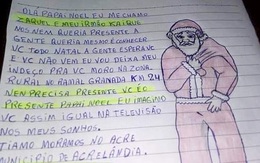 OLÁ PAPAI NOEL EU ME CHAMO
ZAQUEL E MEU IRMÃO KAIQUE
NOS NEM QUERIA PRESENTE A
GENTE QUERIA MESMO CONHECER
VC TODO NATAL A GENTE ESPERA VC
E VC NÃO VEM EU VOU DEIXA MEU
INDEÇO PRA VC MORO NA ZONA
RURAL RAMAL GRANADA KM 24
NEN PRECISA PRESENTE VC EO
PRESENTE PAPAI NOEL EU IMAGINO
VC ASSIM IGUAL NA TELEVISÃO
NOS MEUS SONHOS.
TIAMO MORAMOS NO ACRE
MUNICIPIO DE ACRELÂNDIA.